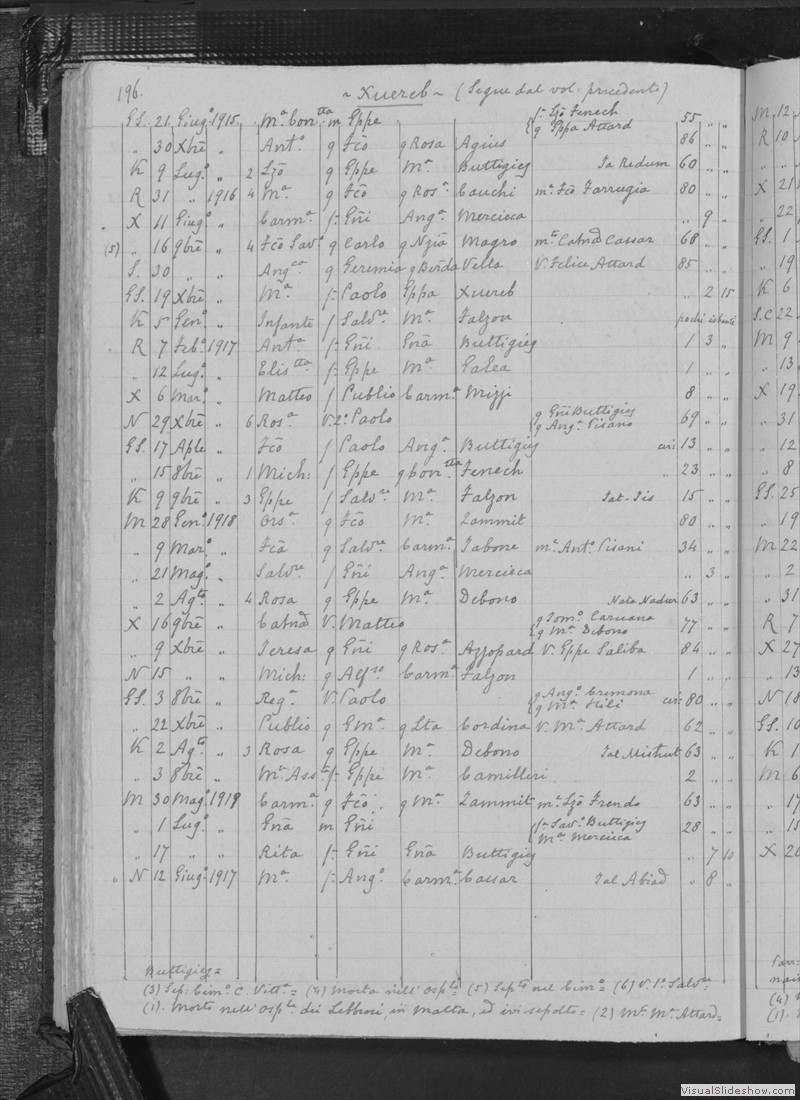 196. ~ Xuereb ~ (Segue dal vol: precedente)
GS. 21 Giugº 1915 Mª Contta m Eppe { fª Lzō Fenech 55 " "
{ q Eppa Attard
" 30 Xbrē " Antº q Fcō q Rosa Agius 86 " "
K 9 Lugº " 2 Lzō q Eppe Mª Buttigieg Ta Redum 60 " "
R 31 " 1916 4 Mª q Fcō q Rosª Cauchi mª Fcō Farrugia 80 " "
X 11 Giugº " Carmª f- Gñi Angª Mercieca " 9 "
(5) " 16 9brē " 4 Fcō Savº q Carlo q Nzjā Magro mª Catnā Cassar 68 " "
S. 30 " " Angca q Geremia q Bñda Vella V. Felice Attard 85 " "
GS. 19 Xbrē " Mª f- Paolo Eppa Xuereb " 2 15
K 5 Genº " Infante f Salvre Mª Falzon pochi istanti
R 7 Febº 1917 Antª f- Gñi Gnā Buttigieg 1 3 "
" 12 Lugº " Elistta f- Eppe Mª Galea 1 " "
X 6 Marº " Matteo f Publio Carmª Mizzi 8 " "
N 29 Xbrē " 6 Rosª V. 2º Paolo { q Gñi Buttigieg 69 " "
{ q Angª Pisano
GS. 17 Aple " Fcō f Paolo Angª Buttigieg cir: 13 " "
" 15 8brē " 1 Mich: f Eppe q Contta Fenech " 23 " "
K 9 9brē " 3 Eppe f Salvre Mª Falzon Tat-Tis 15 " "
M 28 Genº 1918 Orsª q Fcō Mª Zammit 80 " "
" 9 Marº " Fcā q Salvre Carmª Tabone mª Antº Pisani 34 " "
" 21 Magº " Salvre f Gñi Angª Mercieca " 3 "
" 2 Agto " 4 Rosa q Eppe Mª Debono Nata Nadur 63 " "
X 16 9brē " Catnā V. Matteo { q Tomº Caruana 77 " "
{ q Mª Debono
" 9 Xbrē " Teresa q Gñi q Rosª Azzopard V. Eppe Saliba 84 " "
N 15 " " Mich: q Alfso Carmª Falzon 1 " "
GS. 3 8brē " Regª V. Paolo { q Angº Cremona cir: 80 " "
{ q Mª Hili
" 22 Xbrē " Publio q Emª q Lta Cordina V. Mª Attard 62 " "
K 2 Agto " 3 Rosa q Eppe Mª Debono Tal Mishut 63 " "
" 3 8brē " Mª Assta f- Eppe Mª Camilleri 2 " "
M 30 Magº 1919 Carmª q Fcō q Mª Zammit mª Lzō Frendo 63 " "
" 1 Lugº " Gnā m Gñi { fª Savº Buttigieg 28 " "
{ Mª Mercieca
" 17 " " Rita f- Gñi Gnā Buttigieg " 7 10
" N 12 Giugº 1917 Mª f- Angº Carmª Cassar Tal Abiad " 8 "
Buttigieg=
(3) Sep: Cimº C. Vittª= (4) Morta nell' osple= (5) Septo nel Cimº= (6) V. 1º Salvre=
(1). Morto nell' osple dei Lebbrosi, in Malta, ed ivi sepolto= (2) Mª Mª Attard=
M 12
R 10
" "
X 21
" 22
GS. 1
" 19
K 6
S.C 22
M 9
" 13
X 19
" 31
" 12
" 8
GS. 25
" 19
M 22
" 2
" 31
R 7
X 27
" 13
N 18
GS. 10
K 1
M 6
" 17
" 15
X 20
VisualSlideshow.com